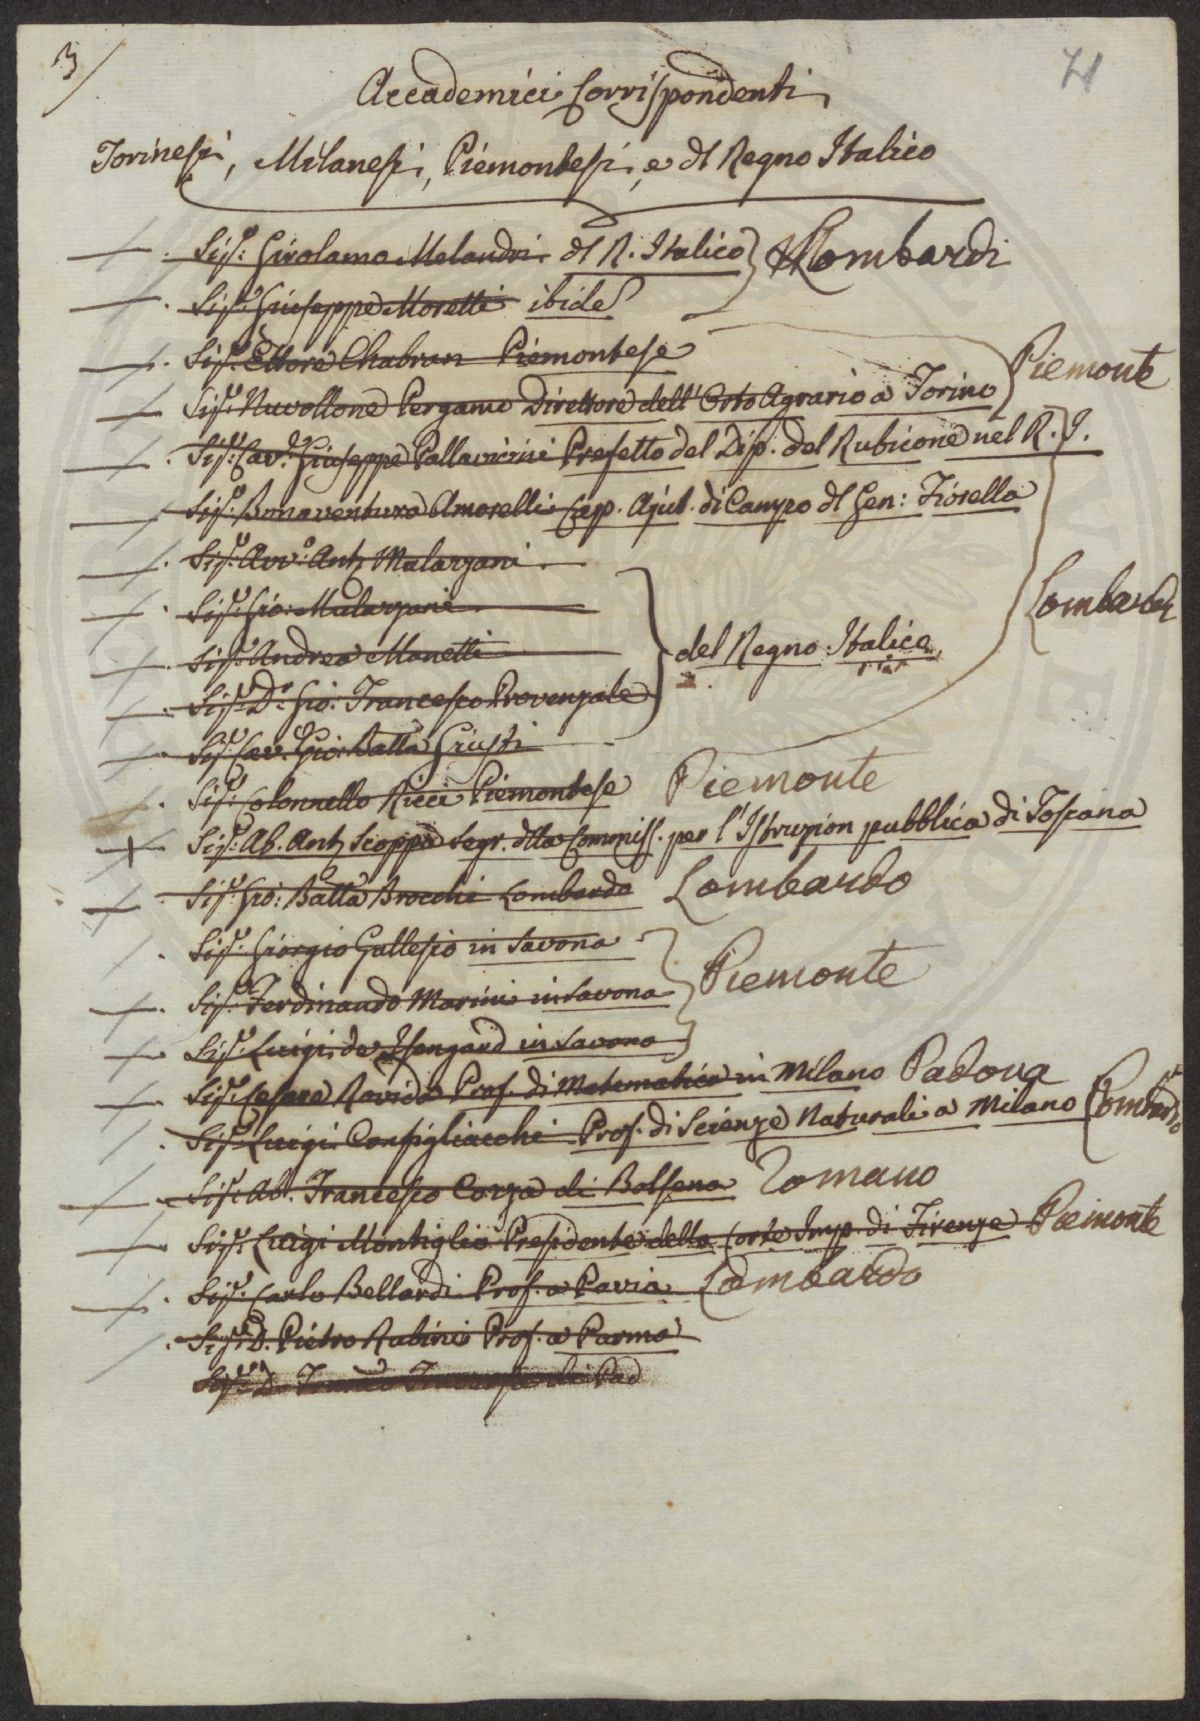 3
71
Accademici Corrispondenti
Torinesi, Milanesi, Piemontesi, e dl Regno Italico
Sigr. Girolamo Melandri dl R. Italico Lombardi
Sigr. Giuseppe Moretti ibide
Sigr. Ettore Chabran Piemontese
Piemonte
Sigr. Nuvollone Pergamo Direttore dell' Orto Agrario a Torino
Sigr. Cavr. Giuseppe Pallavicini Prefetto del Dip. del Rubicone nel R. I.
Sigr. Bonaventura Amorelli Cap. Ajut. di Campo dl Gen: Fiorella
Sigr. Avvo. Anto Malarzani
Sigr. Gio: Malarzani
Lombardi
Sigr. Andrea Manetti
del Regno Italico
Sigr. Dr. Gio: Francesco Provenzale
Sigr. Cav. Gio: Batta Giusti
Sigr. Colonnello Ricci Piemontese Piemonte
Sigr. Ab. Anto Scoppa Segr. dlla Commiss. per l'Istruzion pubblica di Toscana
Sigr. Gio: Batta Brocchi Lombardo Lombardo
Sigr. Giorgio Gallesio in Savona
Sigr. Ferdinando Marini in Savona Piemonte
Sigr. Luigi de Isengard in Savona
Sigr. Cesare Rovida Prof. di Matematica in Milano Padova
Sigr. Luigi Configliacchi Prof. di Scienze Naturali a Milano Lombardo
Sigr. Ab. Francesco Cozza di Bolsena Romano
Sigr. Luigi Montiglio Presidente della Corte Imp. di Firenze Piemonte
Sigr. Carlo Bellardi Prof. a Pavia Lombardo
Sigr. D. Pietro Rubini Prof. a Parma
Sigr. D. di Pad